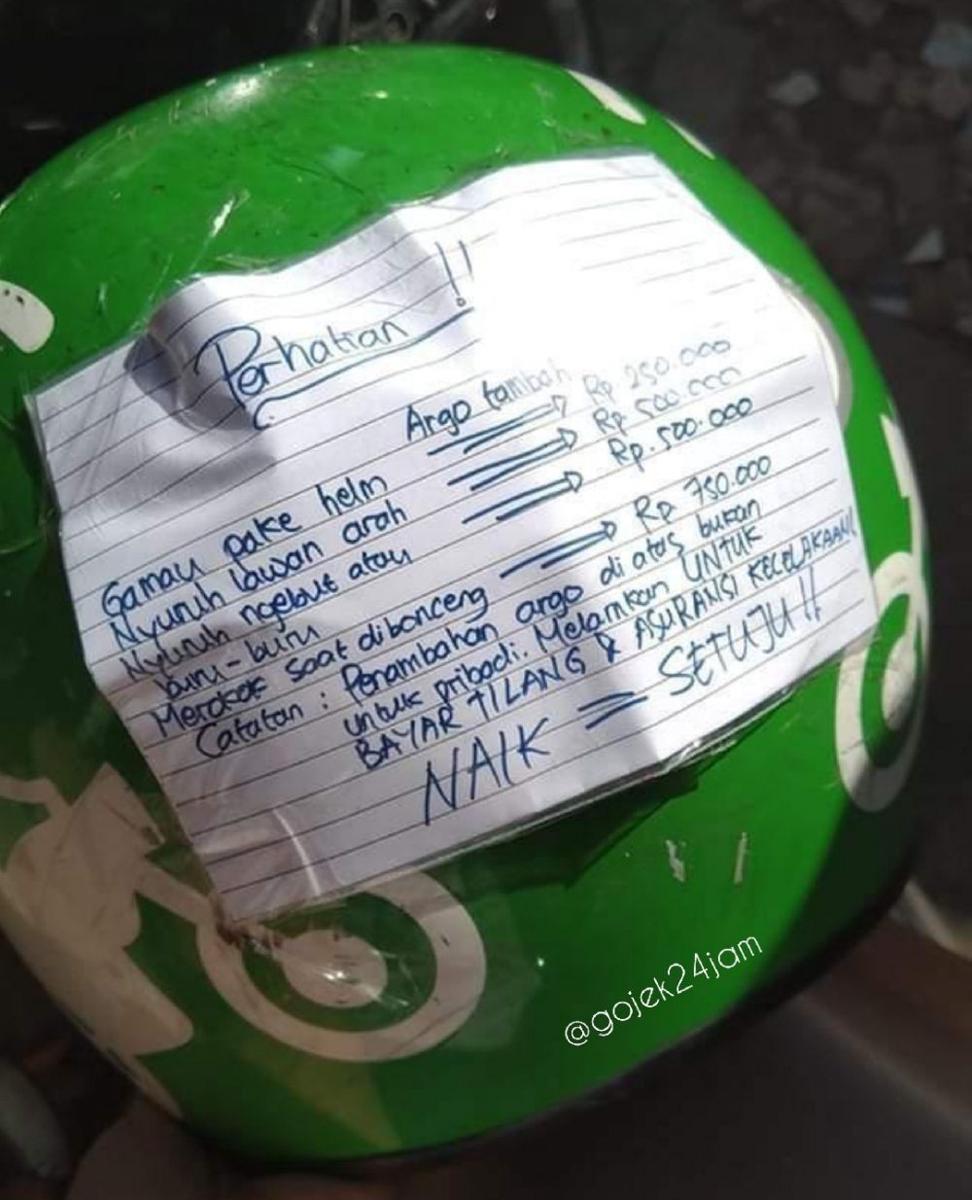 Perhatian !!
Argo tambah
Gamau pake helm Rp 250.000
Nyuruh lawan arah Rp 500.000
Nyuruh ngebut atau Rp. 500.000
buru-buru
Merokok saat dibonceng Rp 750.000
Catatan : Penambahan argo di atas bukan
untuk pribadi. Melainkan UNTUK
BAYAR TILANG & ASURANSI KECELAKAAN!!
NAIK = SETUJU!!
@gojek24jam